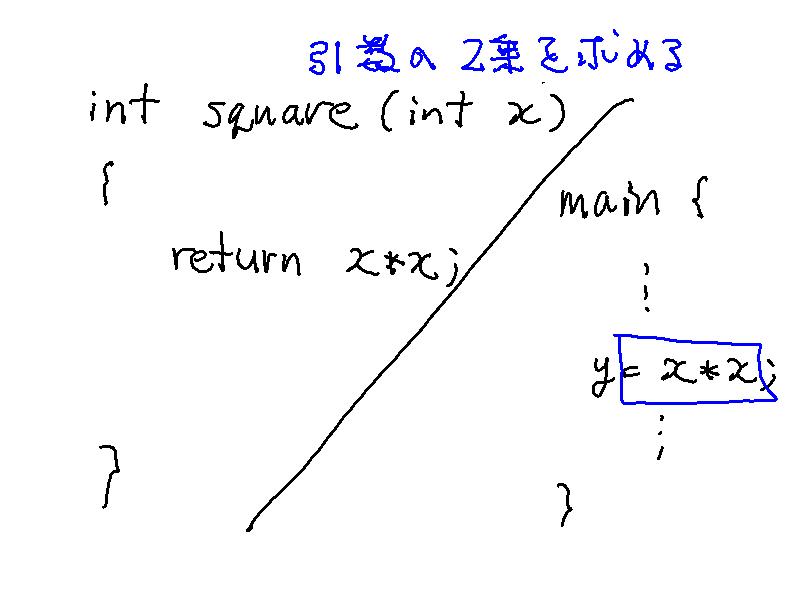 引数の2乗を求める
int square (int x)
{
return x*x;
}
main {
⋮
y = x*x;
⋮
}